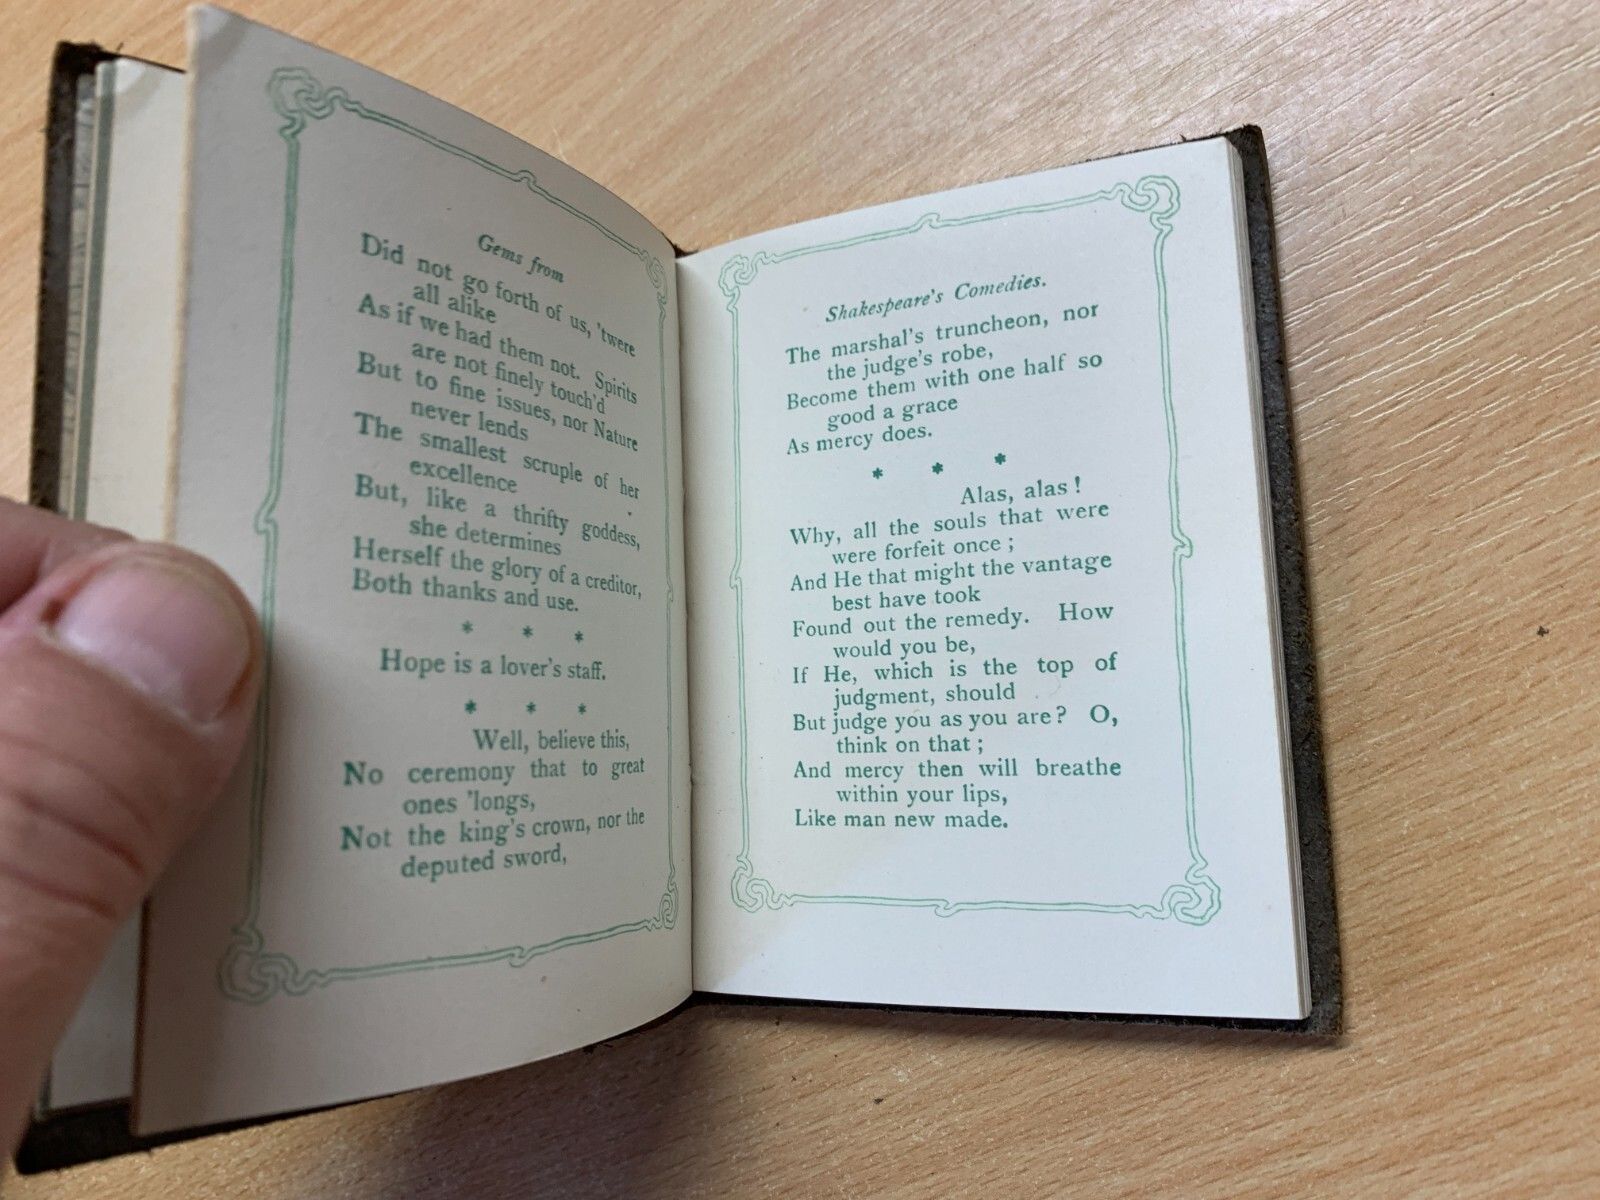 Gems from
Did not go forth of us, 'twere
all alike
As if we had them not. Spirits
are not finely touch'd
But to fine issues, nor Nature
never lends
The smallest scruple of her
excellence
But, like a thrifty goddess,
she determines
Herself the glory of a creditor,
Both thanks and use.
* * *
Hope is a lover's staff.
* * *
Well, believe this,
No ceremony that to great
ones 'longs,
Not the king's crown, nor the
deputed sword,
Shakespeare's Comedies.
The marshal's truncheon, nor
the judge's robe,
Become them with one half so
good a grace
As mercy does.
* * *
Alas, alas!
Why, all the souls that were
were forfeit once;
And He that might the vantage
best have took
Found out the remedy. How
would you be,
If He, which is the top of
judgment, should
But judge you as you are? O,
think on that;
And mercy then will breathe
within your lips,
Like man new made.